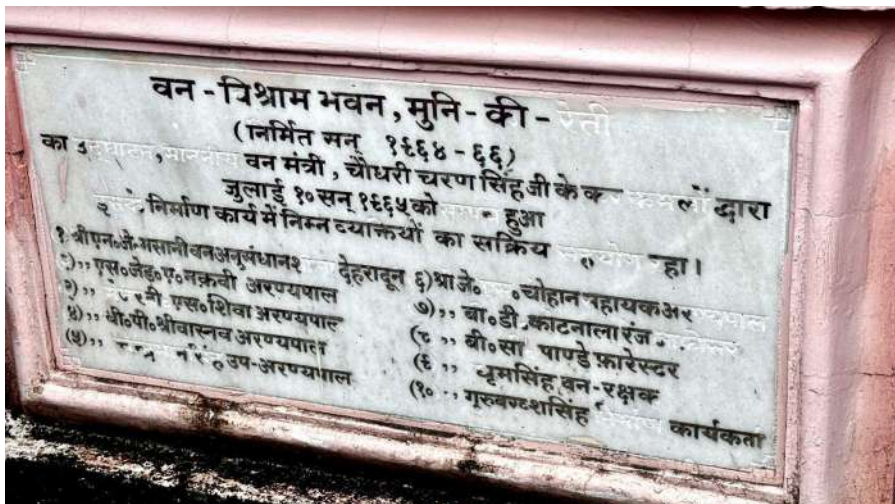 वन - विश्राम भवन, मुनि - की - रेती
(निर्मित सन् १९६४ - ६६)
का उद्घाटन, माननीय वन मंत्री, चौधरी चरण सिंह जी के कर कमलों द्वारा
जुलाई १० सन् १९६५ को हुआ
इसके निर्माण कार्य में निम्न व्यक्तियों का सक्रिय सहयोग रहा।
१) श्री एन० जे० मसानी वन अनुसंधान देहरादून
२),, एस० जेड० ए० नक़वी अरण्यपाल
३),, एस० शिवा अरण्यपाल
४),, वी० पी० श्रीवास्तव अरण्यपाल
(५),, उप-अरण्यपाल
६) श्री जे० चोहान सहायक
७),, डी०
(८ ,, बी० सी० पाण्डे फ़ारेस्टर
(९ ,, धूमसिंह वन - रक्षक
(१० ,, गुरुबख्शसिंह कार्यकर्ता